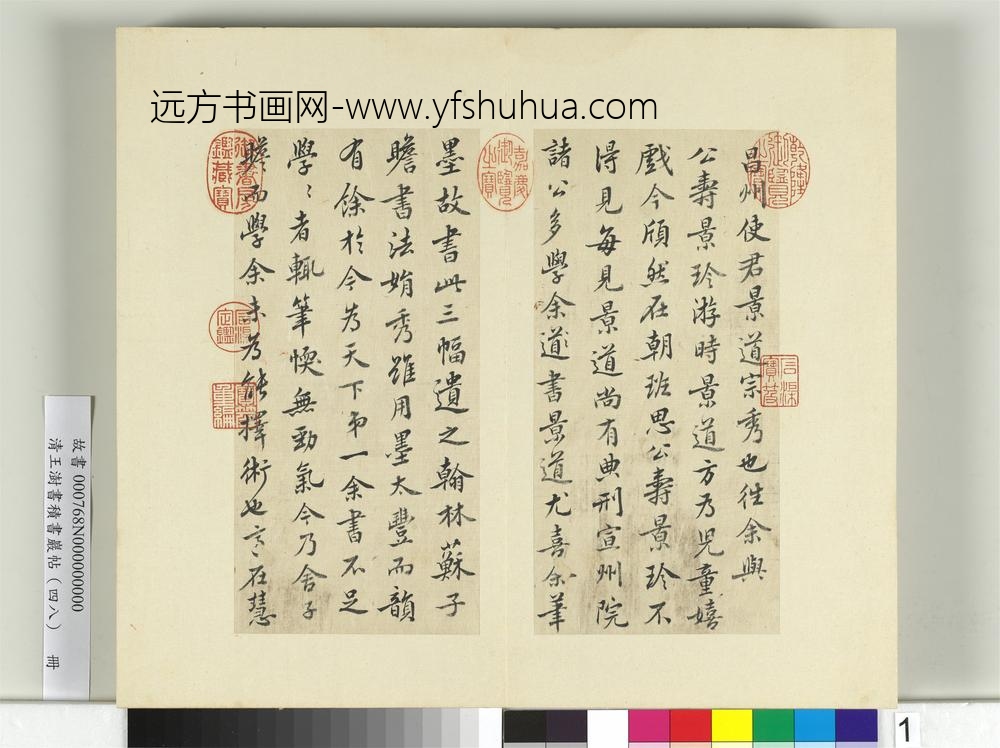 远方书画网-www.yfshuhua.com
乾隆御覽之寶
石渠寶笈
昌州使君景道宗秀也往余與
公壽景珍游時景道方为兒童嬉
戲今頎然在朝班思公壽景珍不
得見每見景道尚有典刑宣州院
諸公多學余道書景道尤喜余筆
嘉慶御覽之寶
墨故書此三幅遺之翰林蘇子
瞻書法娟秀雖用墨太豐而韻
有餘於今为天下弟一余書不足
學〻者輒筆愞無勁氣今乃舍子
瞻而學余未为能擇術也言在慧
御書房鑑藏寶
石渠定鑑
寶笈重編
故書 000768N000000000
清王澍書積書巖帖（四八） 冊
1